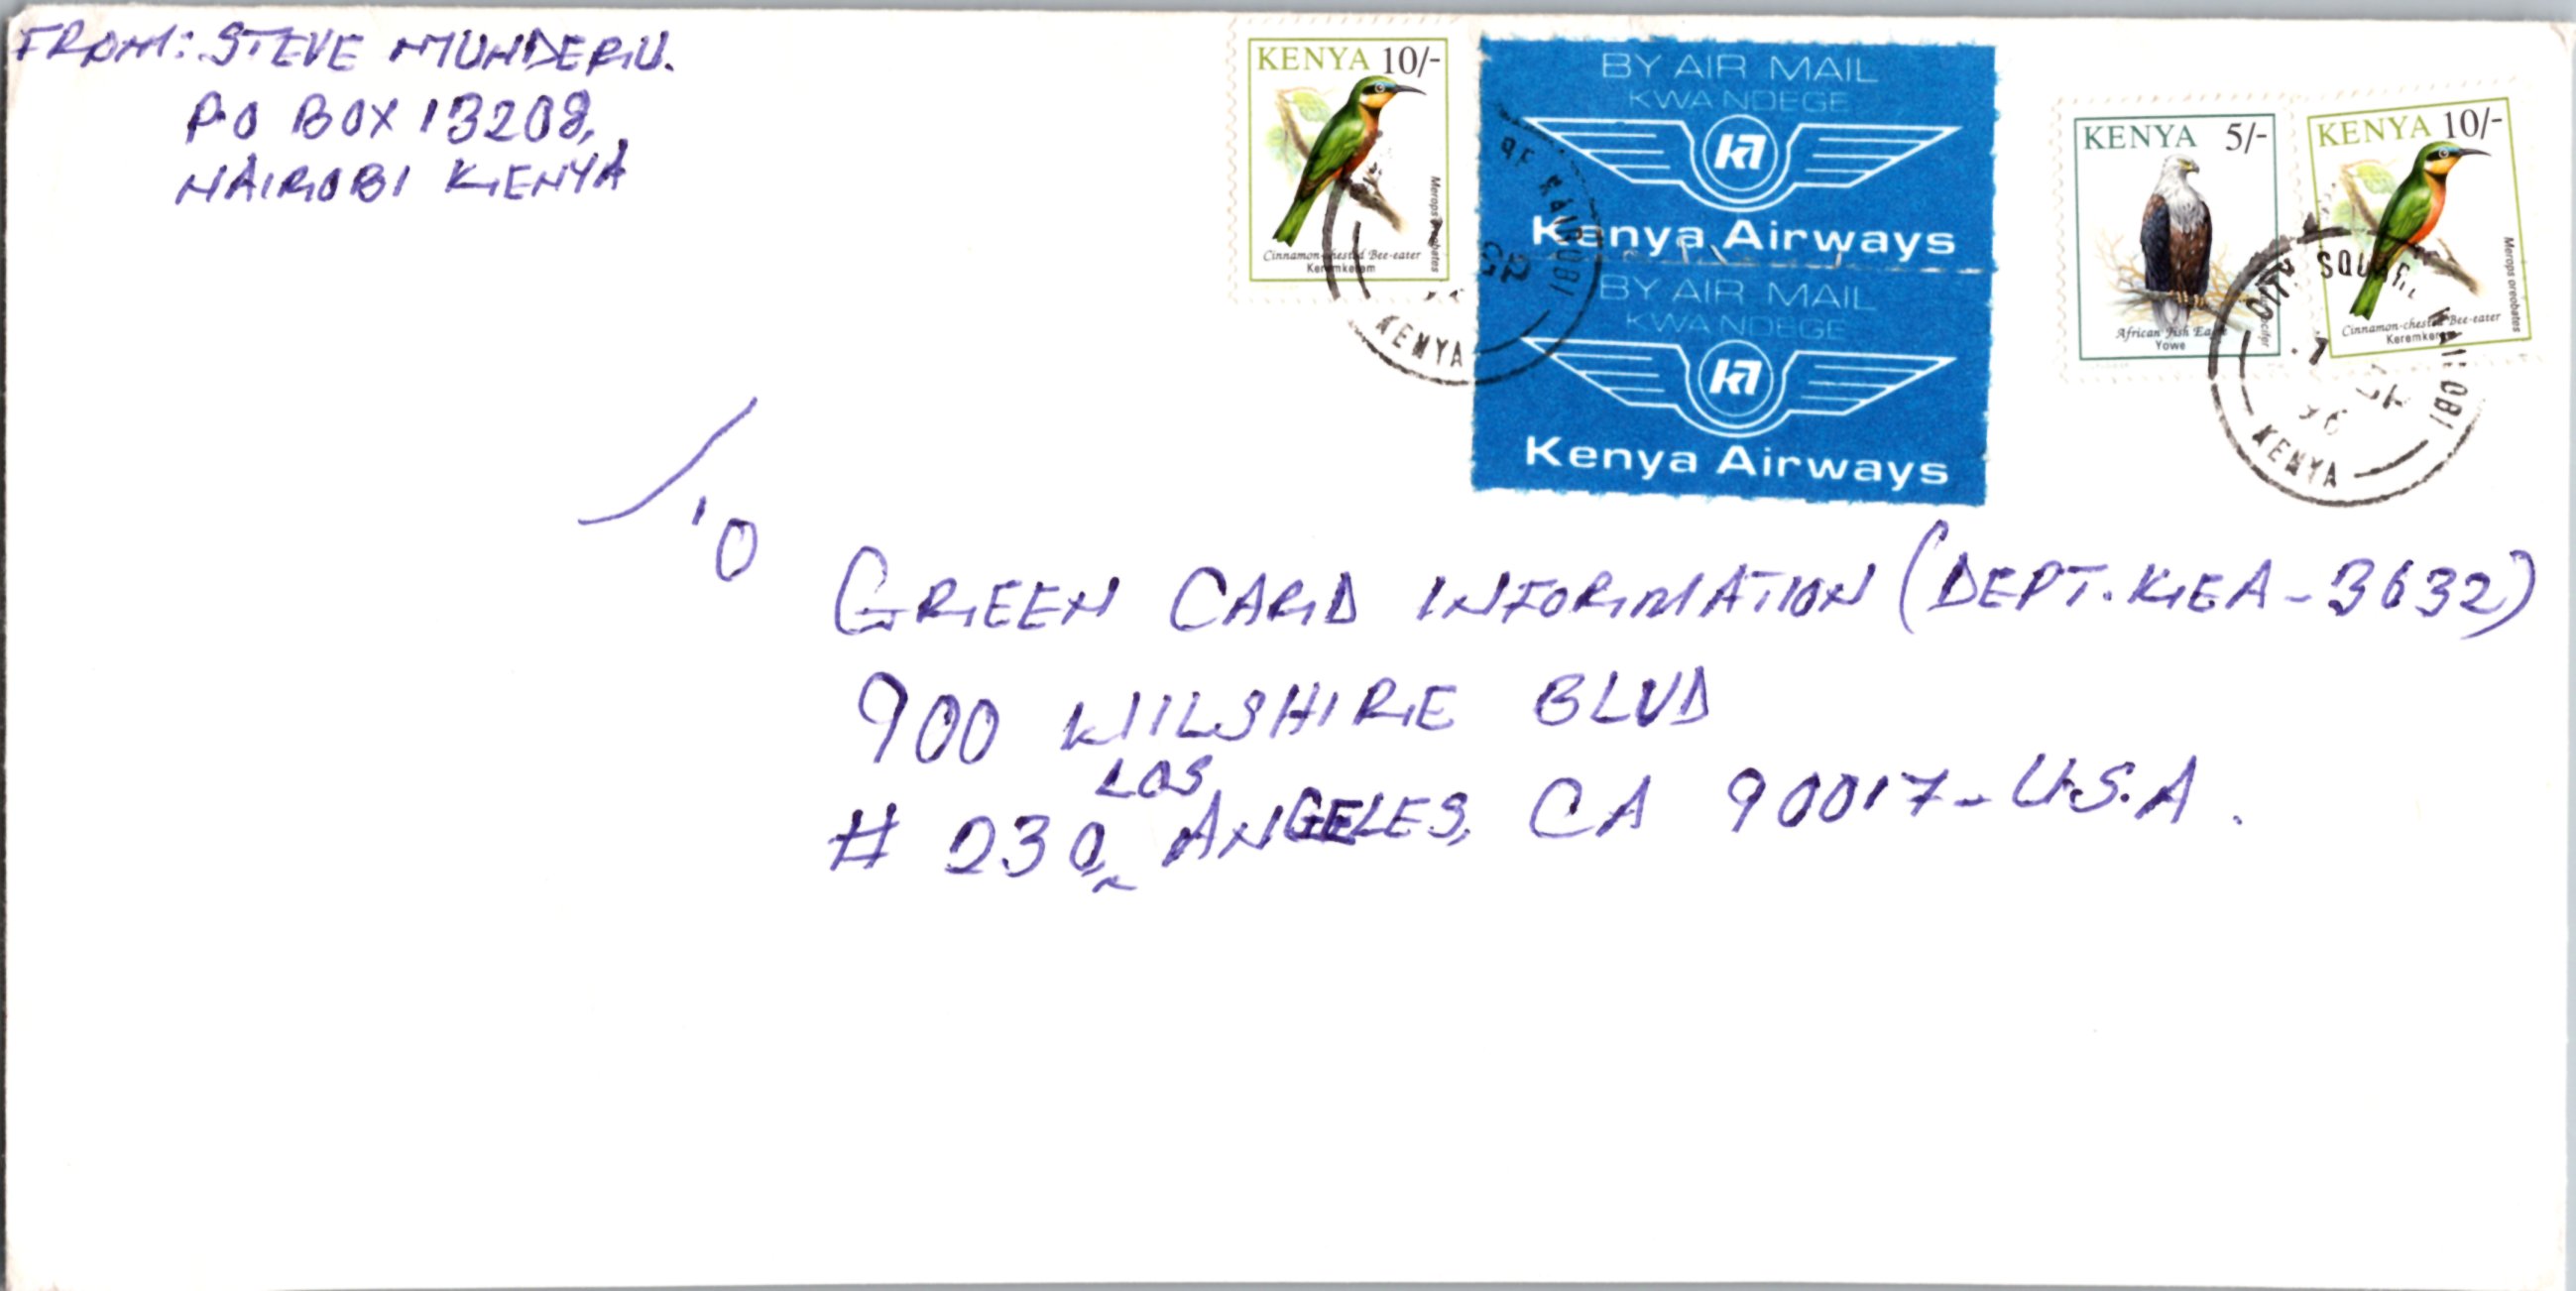 FROM: STEVE MUNDERU.
P.O BOX 13208,
NAIROBI KENYA
KENYA 10/-
Merops oreobates
Cinnamon-chested Bee-eater
Keremkerem
KENYA
NAIROBI
BY AIR MAIL
KWA NDEGE
Kenya Airways
BY AIR MAIL
KWA NDEGE
Kenya Airways
KENYA 5/-
African Fish Eagle
Yowe
KENYA 10/-
Merops oreobates
Cinnamon-chested Bee-eater
Keremkerem
SQUARE NAIROBI
96
KENYA
TO
GREEN CARD INFORMATION (DEPT. KEA-3632)
900 WILSHIRE BLVD
# 230, LOS ANGELES, CA 90017-U.S.A.